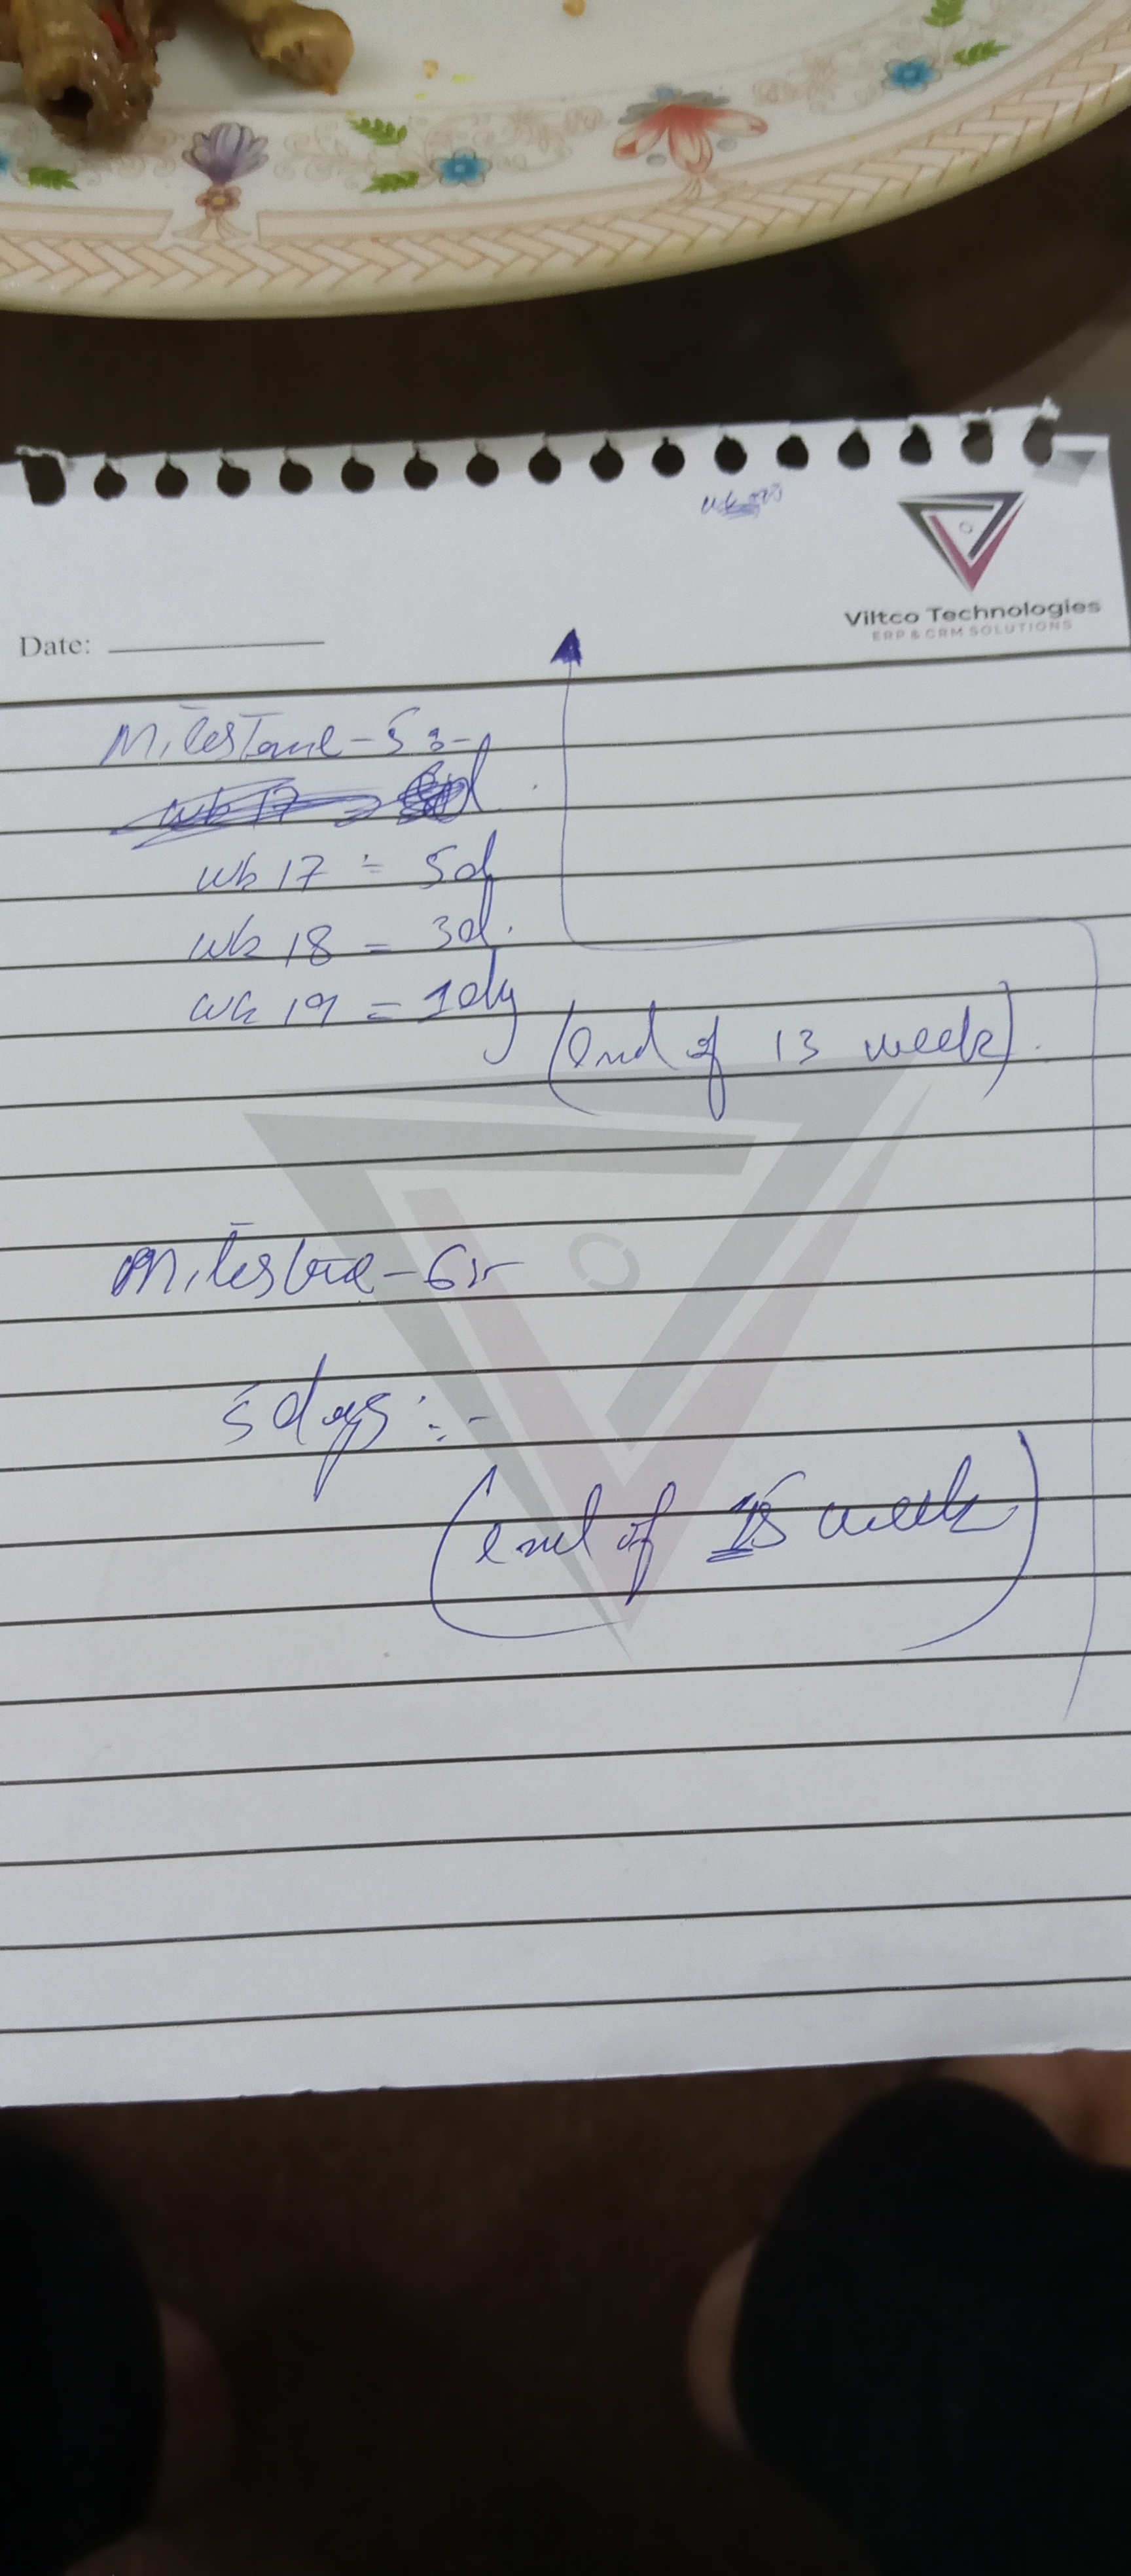 Viltco Technologies
ERP & CRM SOLUTIONS
Date:
Milestone-5:-
wk 17 = 5d
wk 18 = 3d.
wk 19 = 1dy
(end of 13 week).
Milestone-6:-
5 days:-
(end of 15 week)